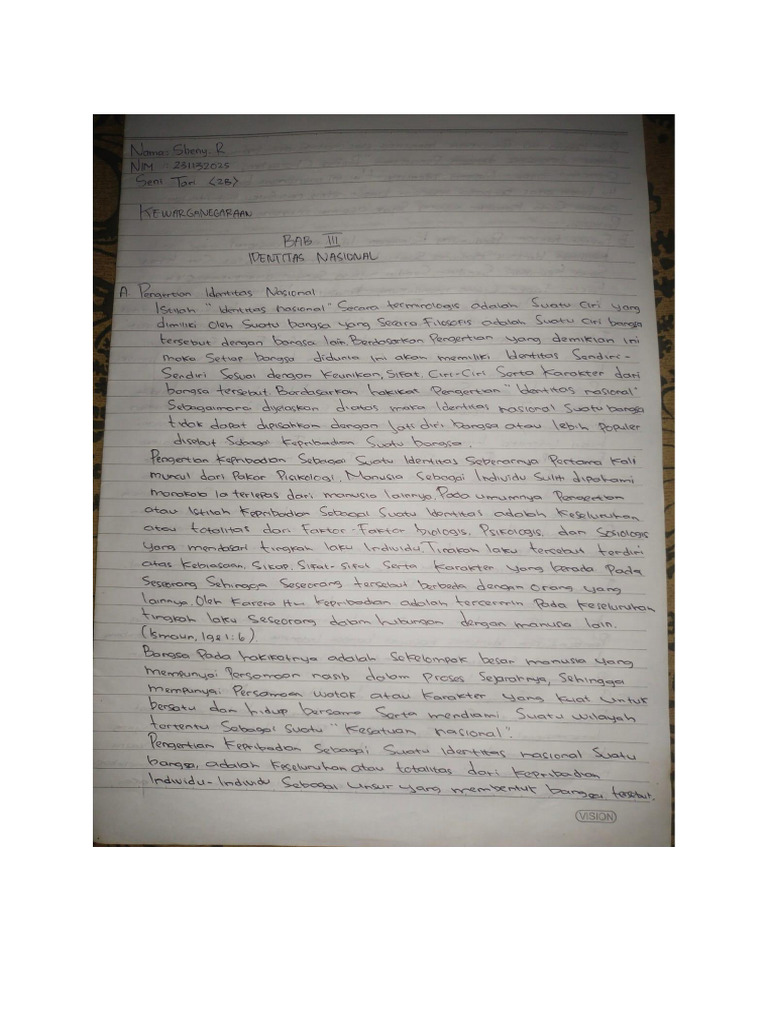 Nama : Sheny R
NIM : 231132025
Seni Tari (2B)
KEWARGANEGARAAN
BAB III
IDENTITAS NASIONAL
A. Pengertian Identitas Nasional
Istilah "Identitas nasional" Secara terminologis adalah Suatu Ciri yang
dimiliki oleh Suatu bangsa yang Secara Filosofis adalah Suatu Ciri bangsa
tersebut dengan bangsa lain. Berdasarkan Pengertian yang demikian ini
maka Setiap bangsa didunia ini akan memiliki Identitas Sendiri-
Sendiri Sesuai dengan Keunikan, Sifat, Ciri-Ciri Serta Karakter dari
bangsa tersebut. Berdasarkan hakikat Pengertian "Identitas nasional"
Sebagaimana dijelaskan diatas maka Identitas nasional Suatu bangsa
tidak dapat dipisahkan dengan Jati diri bangsa atau lebih Populer
disebut Sebagai Kepribadian Suatu bangsa.
Pengertian Kepribadian Sebagai Suatu Identitas Sebenarnya Pertama Kali
muncul dari Pakar Pisikologi, Manusia Sebagai Individu Sulit dipahami
manakala Ia terlepas dari manusia lainnya. Pada umumnya Pengertian
atau Istilah Kepribadian Sebagai Suatu Identitas adalah Keseluruhan
atau totalitas dari Faktor-Faktor biologis, Psikologis, dan Sosiologis
yang mendasari tingkah laku Individu. Tingkah laku tersebut terdiri
atas Kebiasaan, Sikap, Sifat-sifat Serta Karakter yang berada Pada
Seseorang Sehingga Seseorang tersebut berbeda dengan orang yang
lainnya. Oleh Karena Itu Kepribadian adalah tercermin Pada Keseluruhan
tingkah laku Seseorang dalam hubungan dengan manusia lain.
(Ismaun, 1981:6)
Bangsa Pada hakikatnya adalah Sekelompok besar manusia yang
mempunyai Persamaan nasib dalam Proses Sejarahnya, Sehingga
mempunyai Persamaan watak atau Karakter yang Kuat Untuk
bersatu dan hidup bersama Serta mendiami Suatu wilayah
tertentu Sebagai Suatu "Kesatuan nasional".
Pengertian Kepribadian Sebagai Suatu Identitas nasional Suatu
bangsa, adalah Keseluruhan atau totalitas dari Kepribadian
Individu-Individu Sebagai Unsur yang membentuk bangsa tersebut.
VISION